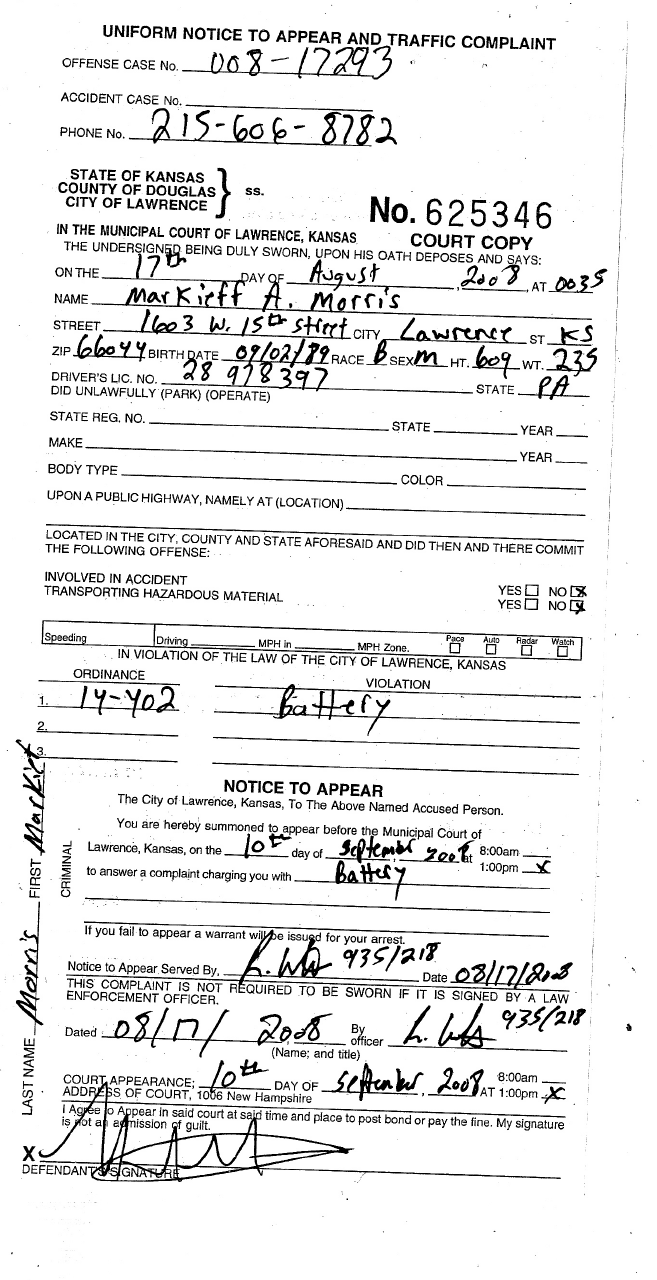 UNIFORM NOTICE TO APPEAR AND TRAFFIC COMPLAINT
OFFENSE CASE No. 008-17293
ACCIDENT CASE No.
PHONE No. 215-606-8782
STATE OF KANSAS
COUNTY OF DOUGLAS } ss.
CITY OF LAWRENCE
No. 625346
IN THE MUNICIPAL COURT OF LAWRENCE, KANSAS COURT COPY
THE UNDERSIGNED BEING DULY SWORN, UPON HIS OATH DEPOSES AND SAYS:
ON THE 17th DAY OF August, 2008 AT 0035
NAME Markieff A. Morris
STREET 1603 W. 15th Street CITY Lawrence ST KS
ZIP 66044 BIRTH DATE 09/02/89 RACE B SEX M HT. 609 WT. 235
DRIVER'S LIC. NO. 28 978397 STATE PA
DID UNLAWFULLY (PARK) (OPERATE)
STATE REG. NO. STATE YEAR
MAKE YEAR
BODY TYPE COLOR
UPON A PUBLIC HIGHWAY, NAMELY AT (LOCATION)
LOCATED IN THE CITY, COUNTY AND STATE AFORESAID AND DID THEN AND THERE COMMIT
THE FOLLOWING OFFENSE:
INVOLVED IN ACCIDENT YES ☐ NO ☒
TRANSPORTING HAZARDOUS MATERIAL YES ☐ NO ☒
Speeding Driving MPH in MPH Zone. Pace ☐ Auto ☐ Radar ☐ Watch ☐
IN VIOLATION OF THE LAW OF THE CITY OF LAWRENCE, KANSAS
ORDINANCE VIOLATION
1. 14-402 Battery
2.
3.
NOTICE TO APPEAR
The City of Lawrence, Kansas, To The Above Named Accused Person.
You are hereby summoned to appear before the Municipal Court of
Lawrence, Kansas, on the 10th day of September, 2008 at 8:00am
1:00pm X
to answer a complaint charging you with Battery
If you fail to appear a warrant will be issued for your arrest.
Notice to Appear Served By, 935/218 Date 08/17/2008
THIS COMPLAINT IS NOT REQUIRED TO BE SWORN IF IT IS SIGNED BY A LAW
ENFORCEMENT OFFICER.
Dated 08/17/2008 By officer 935/218
(Name; and title)
COURT APPEARANCE; 10th DAY OF September, 2008 AT 8:00am
1:00pm X
ADDRESS OF COURT, 1006 New Hampshire
I Agree to Appear in said court at said time and place to post bond or pay the fine. My signature
is not an admission of guilt.
X
DEFENDANT'S SIGNATURE
LAST NAME Morris FIRST Markief
CRIMINAL